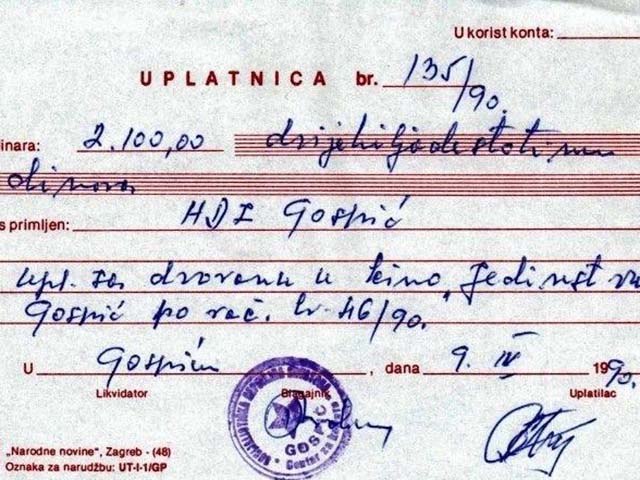 U korist konta:
UPLATNICA br. 135/90.
inara: 2.100,00 dvijehiljadestotinu
dinara
s primljen: HDZ Gospić
upl. za dvoranu u kino "Jedinstvo
Gospić po rač. br 46/90.
U Gospiću, dana 9. IV 1990.
Likvidator Blagajnik Uplatilac
SOCIJALISTIČKA REPUBLIKA HRVATSKA
GOSPIĆ
Centar za
„Narodne novine", Zagreb - (48)
Oznaka za narudžbu: UT-I-1/GP